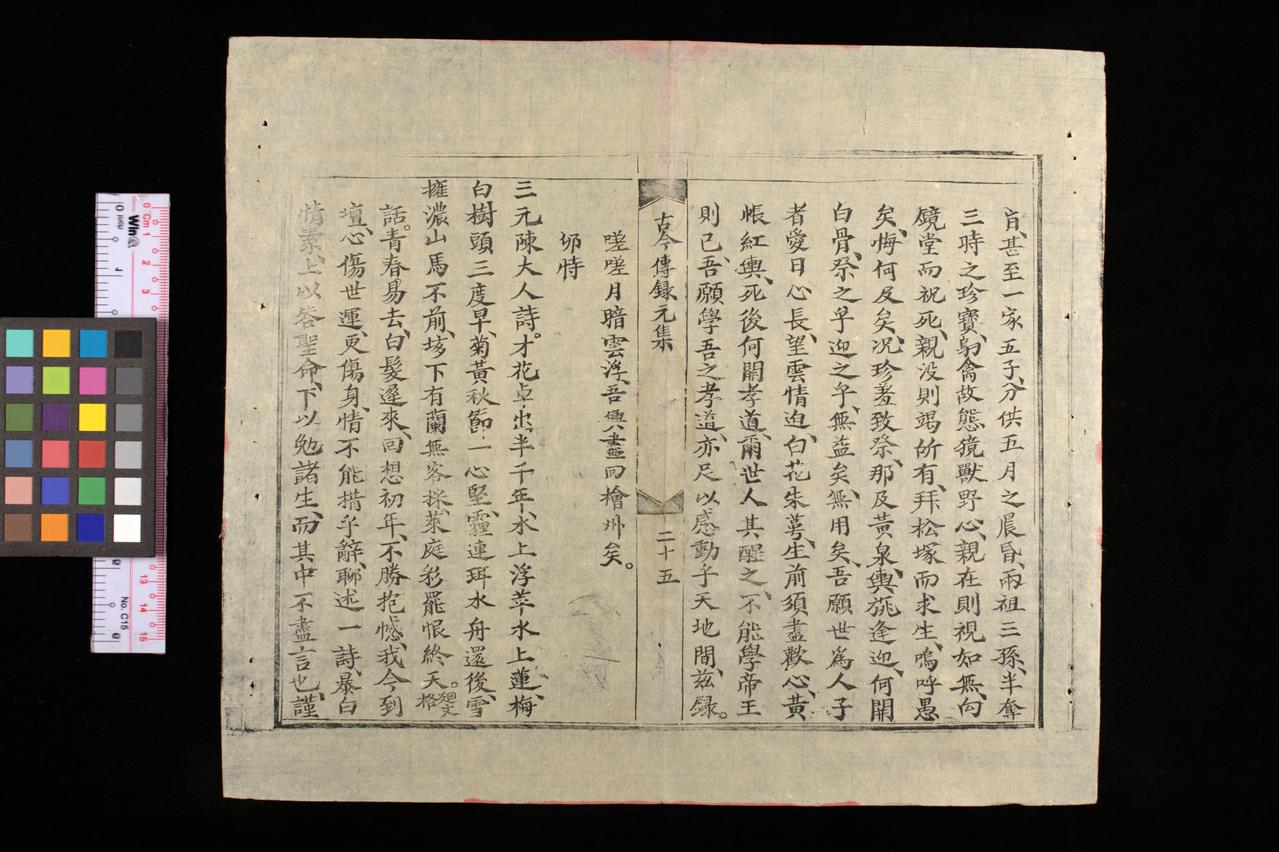 肓、甚至一家五子、分供五月之晨昏、兩祖三孫、半奪
三時之珍寶、梟禽故態、獍獸野心、親在則視如無、向
鏡堂而祝死、親没則竭所有、拜松塚而求生、嗚呼愚
矣、悔何及矣、况珍羞致祭、那及黃泉、輿旐逢迎、何開
白骨、祭之乎迎之乎、無益矣、無用矣、吾願世爲人子
者愛日心長、望雲情迫、白花朱萼、生前須盡歡心、黃
帳紅輿、死後何關孝道、爾世人其醒之、不能學帝王
則已、吾願學吾之孝道、亦足以感動乎天地間、兹録。
古今傳録元集
二十五
嗟嗟月暗雲浮、吾興盡回檜州矣。
三元陳大人詩。才花卓出半千年、水上浮萍水上蓮、梅
白樹頭三度早、菊黃秋節一心堅、霾連珥水舟還後、雪
擁濃山馬不前、垓下有蘭無客採、萊庭彩罷恨終天。
話。青春易去、白髮遲來、回想初年、不勝抱憾、我今到
壇、心傷世運、更傷身、情不能措乎辭、聊述一詩、暴白
情素、上以答聖命、下以勉諸生、而其中不盡言也、謹